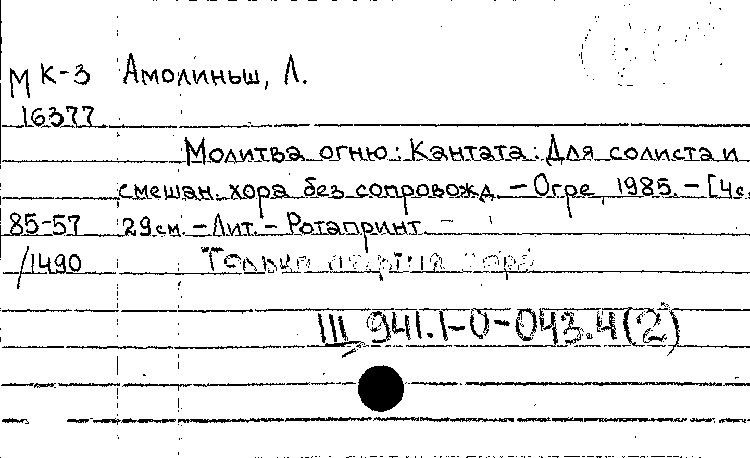 М К-3 Амолиньш, Л.
16377
Молитва огню: Кантата: Для солиста и
смешан. хора без сопровожд. – Огре, 1985. – [4с.
85-57 29см. – Лит. – Ротапринт.
/1490 Только партия хора
Щ 941.1-0-043.4(2)